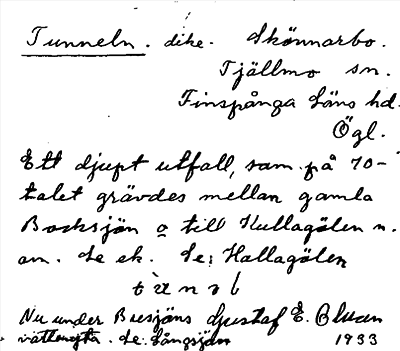 Tunneln. dike. Skönnarbo.
Tjällmo sn.
Finspånga läns hd.
Ögl.
Ett djupt utfall, som på 70-
talet grävdes mellan gamla
Bocksjön o till Kullagölen n.
om. Se ek. Se: Hallagölen
Nu under Busjöns Gjustaf E. Bluun
vattenyta. Se: Långsjön 1933